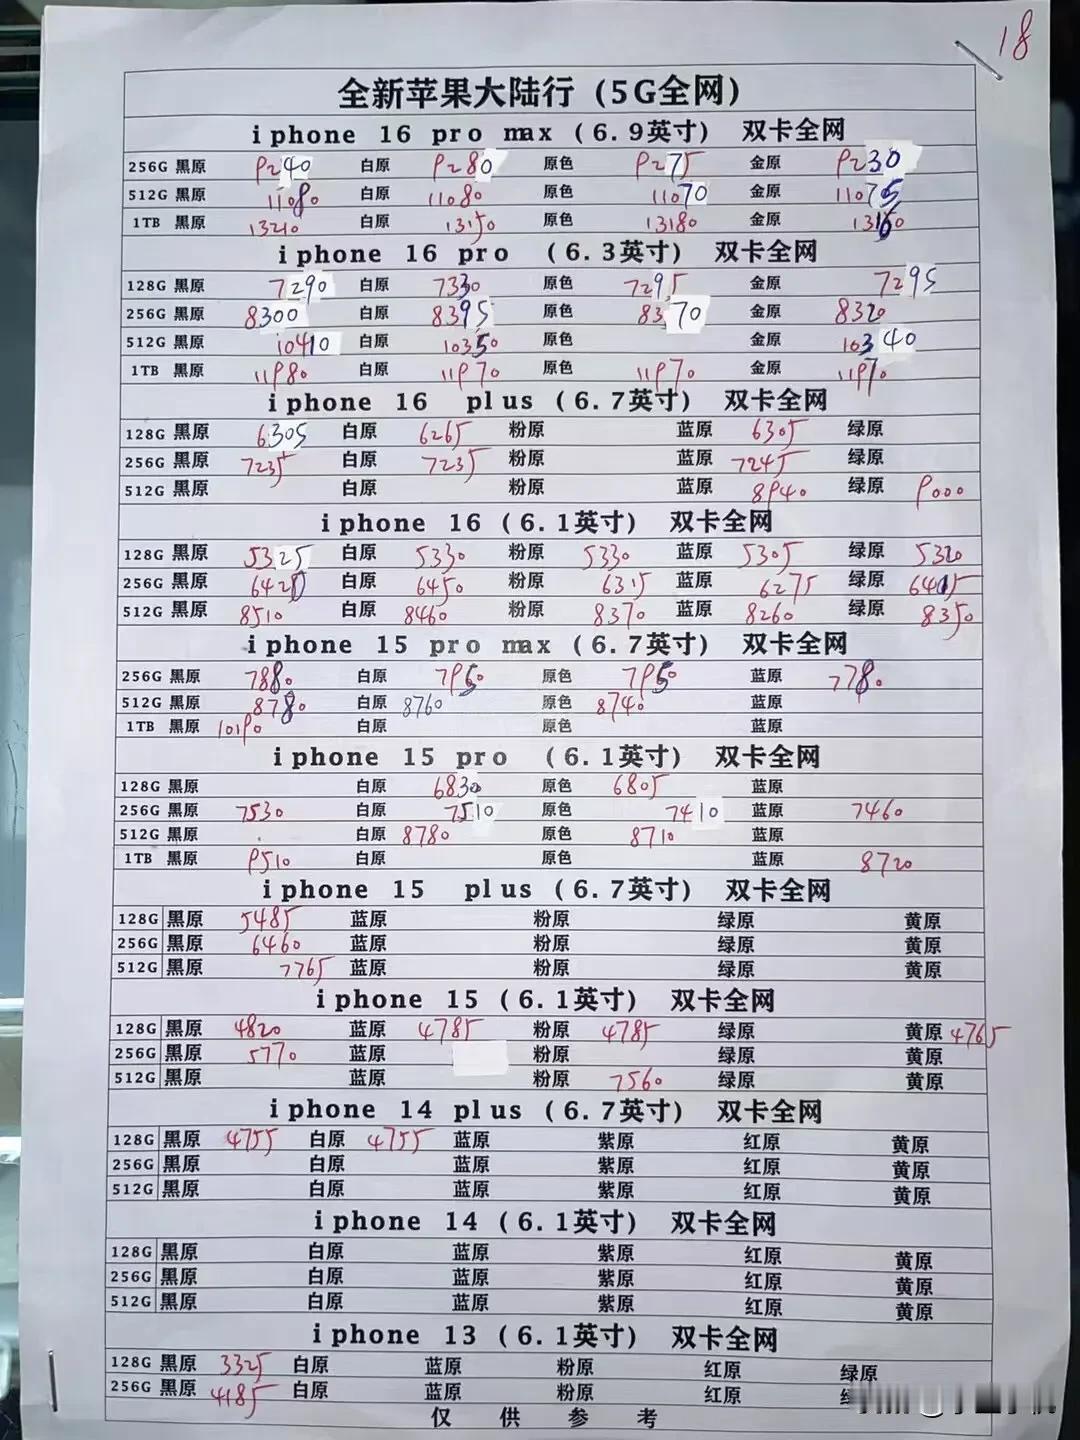 18
全新苹果大陆行（5G全网）
iphone 16 pro max (6.9英寸) 双卡全网
256G 黑原 9240 白原 9280 原色 9275 金原 9230
512G 黑原 11080 白原 11080 原色 11070 金原 11075
1TB 黑原 13210 白原 13150 原色 13180 金原 13160
iphone 16 pro (6.3英寸) 双卡全网
128G 黑原 7290 白原 7330 原色 7295 金原 7295
256G 黑原 8300 白原 8395 原色 8370 金原 8320
512G 黑原 10410 白原 10350 原色 金原 10340
1TB 黑原 11980 白原 11970 原色 11970 金原 11970
iphone 16 plus (6.7英寸) 双卡全网
128G 黑原 6305 白原 6265 粉原 蓝原 6305 绿原
256G 黑原 7235 白原 7235 粉原 蓝原 7245 绿原
512G 黑原 白原 粉原 蓝原 8940 绿原 9000
iphone 16 (6.1英寸) 双卡全网
128G 黑原 5325 白原 5330 粉原 5330 蓝原 5305 绿原 5320
256G 黑原 白原 6450 粉原 6315 蓝原 6275 绿原
512G 黑原 8510 白原 8460 粉原 8370 蓝原 8260 绿原 8350
iphone 15 pro max (6.7英寸) 双卡全网
256G 黑原 7880 白原 7950 原色 7950 蓝原 7780
512G 黑原 8780 白原 8760 原色 8740 蓝原
1TB 黑原 10190 白原 原色 蓝原
iphone 15 pro (6.1英寸) 双卡全网
128G 黑原 白原 6830 原色 6805 蓝原
256G 黑原 7530 白原 7510 原色 7410 蓝原 7460
512G 黑原 白原 8780 原色 8710 蓝原
1TB 黑原 9510 白原 原色 蓝原 8720
iphone 15 plus (6.7英寸) 双卡全网
128G 黑原 5485 蓝原 粉原 绿原 黄原
256G 黑原 6460 蓝原 粉原 绿原 黄原
512G 黑原 7765 蓝原 粉原 绿原 黄原
iphone 15 (6.1英寸) 双卡全网
128G 黑原 4820 蓝原 4785 粉原 4785 绿原 黄原 4765
256G 黑原 5770 蓝原 粉原 绿原 黄原
512G 黑原 蓝原 粉原 7560 绿原 黄原
iphone 14 plus (6.7英寸) 双卡全网
128G 黑原 4755 白原 4755 蓝原 紫原 红原 黄原
256G 黑原 白原 蓝原 紫原 红原 黄原
512G 黑原 白原 蓝原 紫原 红原 黄原
iphone 14 (6.1英寸) 双卡全网
128G 黑原 白原 蓝原 紫原 红原 黄原
256G 黑原 白原 蓝原 紫原 红原 黄原
512G 黑原 白原 蓝原 紫原 红原 黄原
iphone 13 (6.1英寸) 双卡全网
128G 黑原 3325 白原 蓝原 粉原 红原 绿原
256G 黑原 4185 白原 蓝原 粉原 红原
仅供参考